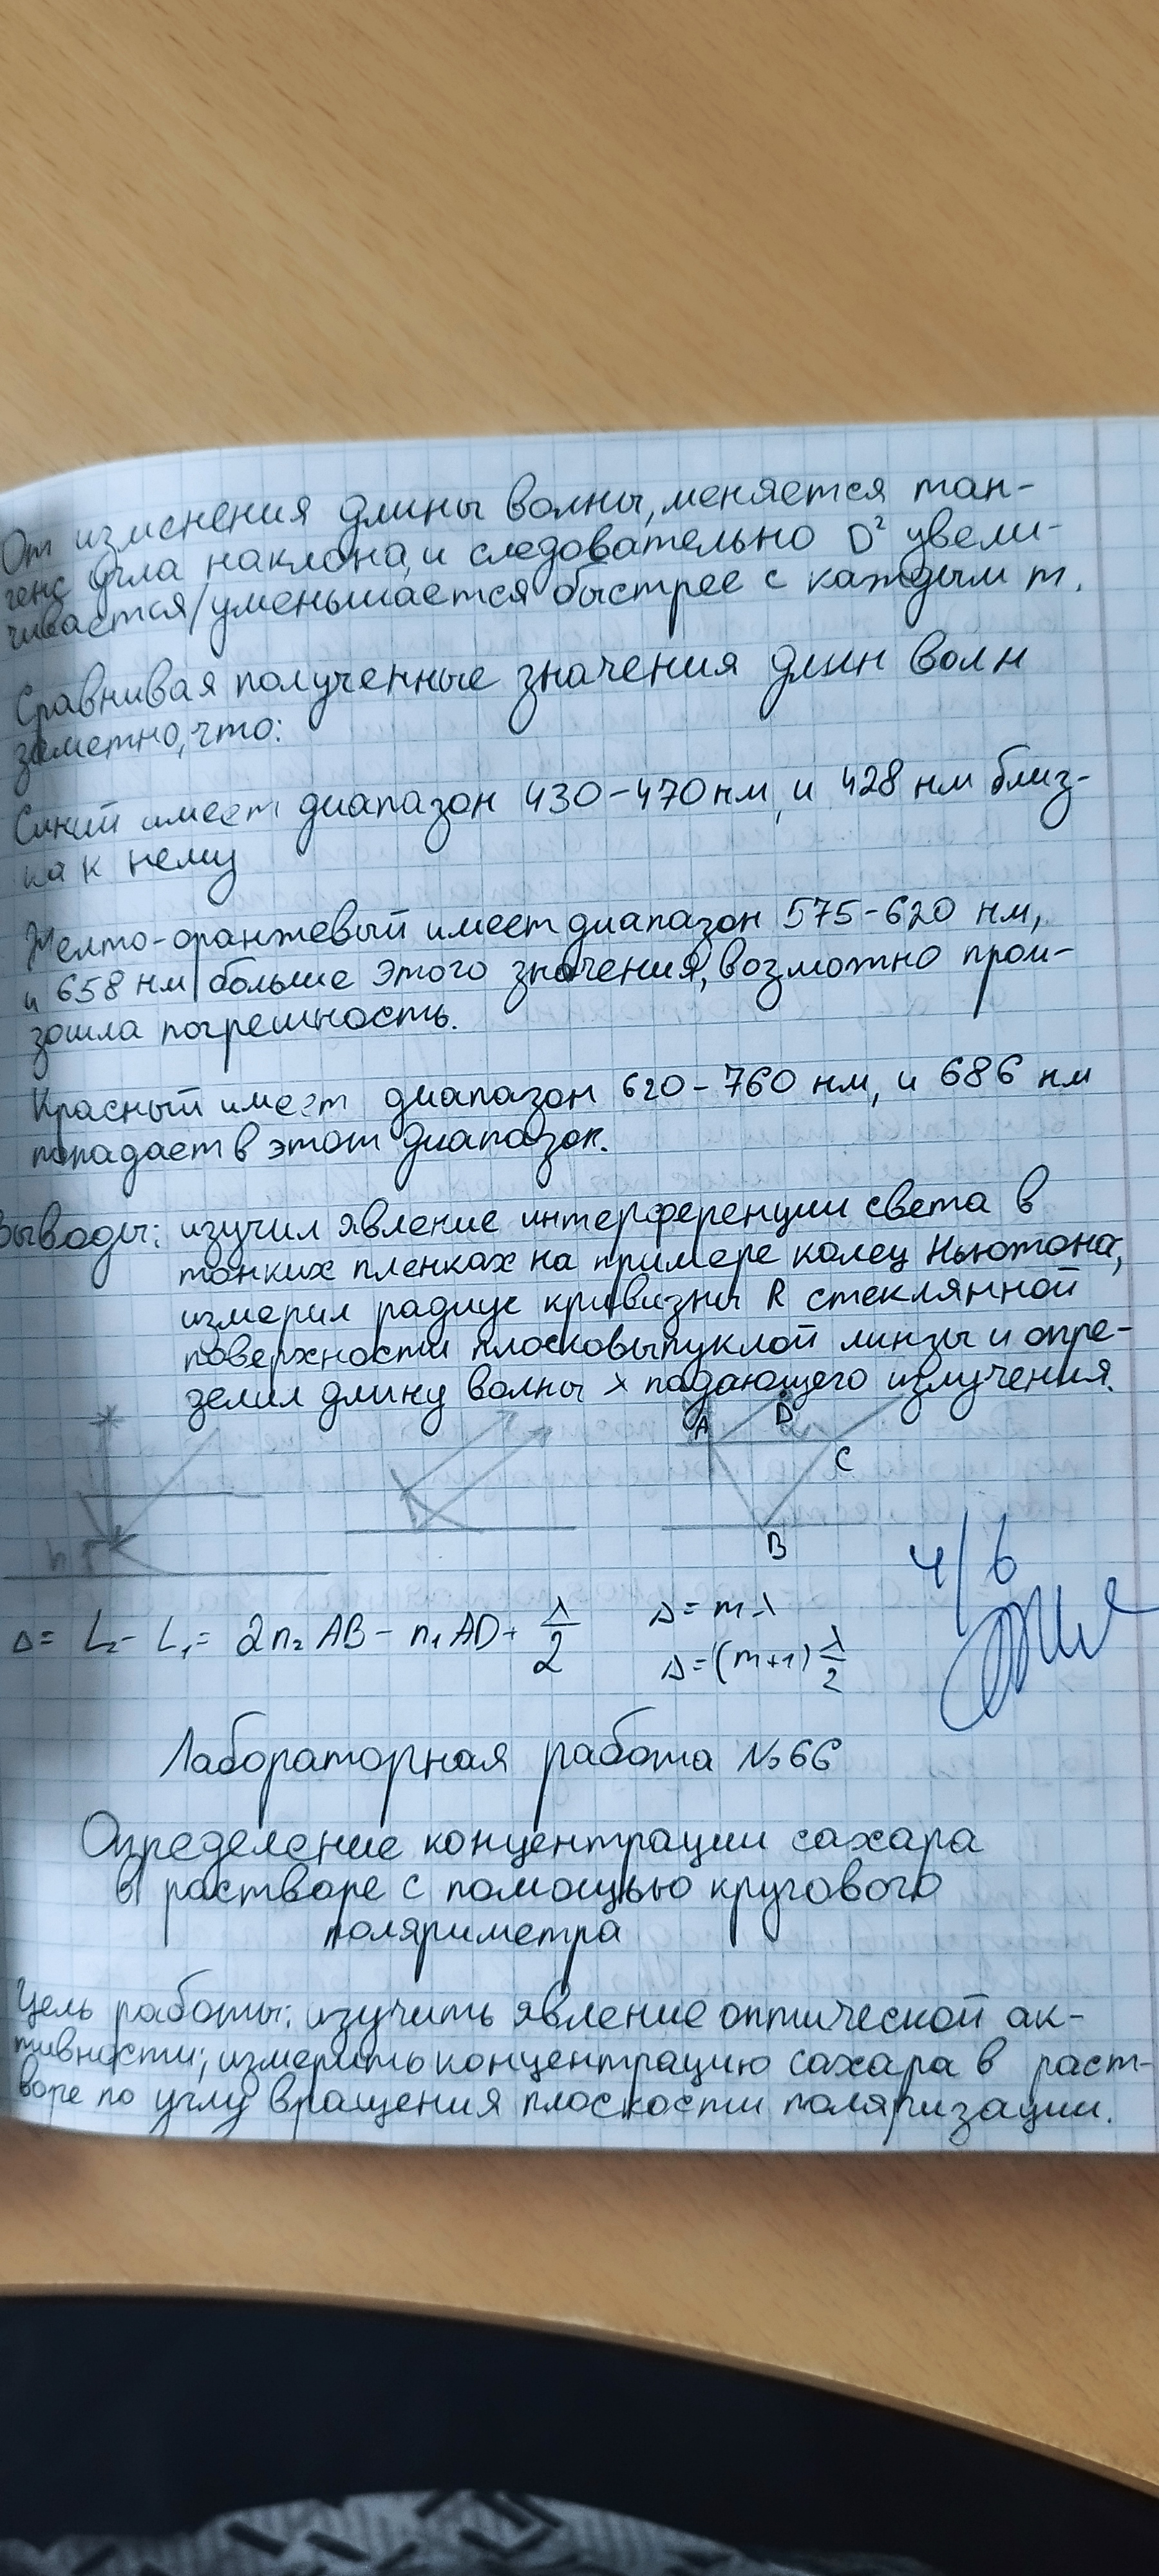 От изменения длины волны, меняется тан-
генс угла наклона, и следовательно D² увели-
чивается/уменьшается быстрее с каждым m.
Сравнивая полученные значения длин волн
заметно, что:
Синий имеет диапазон 430-470 нм, и 428 нм близ-
ка к нему
Желто-оранжевый имеет диапазон 575-620 нм,
и 658 нм больше этого значения, возможно прои-
зошла погрешность.
Красный имеет диапазон 620-760 нм, и 686 нм
попадает в этот диапазон.
Выводы: изучил явление интерференции света в
тонких пленках на примере колец Ньютона,
измерил радиус кривизны R стеклянной
поверхности плосковыпуклой линзы и опре-
делил длину волны λ падающего излучения.
A D C
h
B
Δ = L₂ - L₁ = 2n₂ AB - n₁ AD + λ/2
Δ = mλ
Δ = (m+1) λ/2
Лабораторная работа №66
Определение концентрации сахара
в растворе с помощью кругового
поляриметра
Цель работы: изучить явление оптической ак-
тивности; измерить концентрацию сахара в раст-
воре по углу вращения плоскости поляризации.